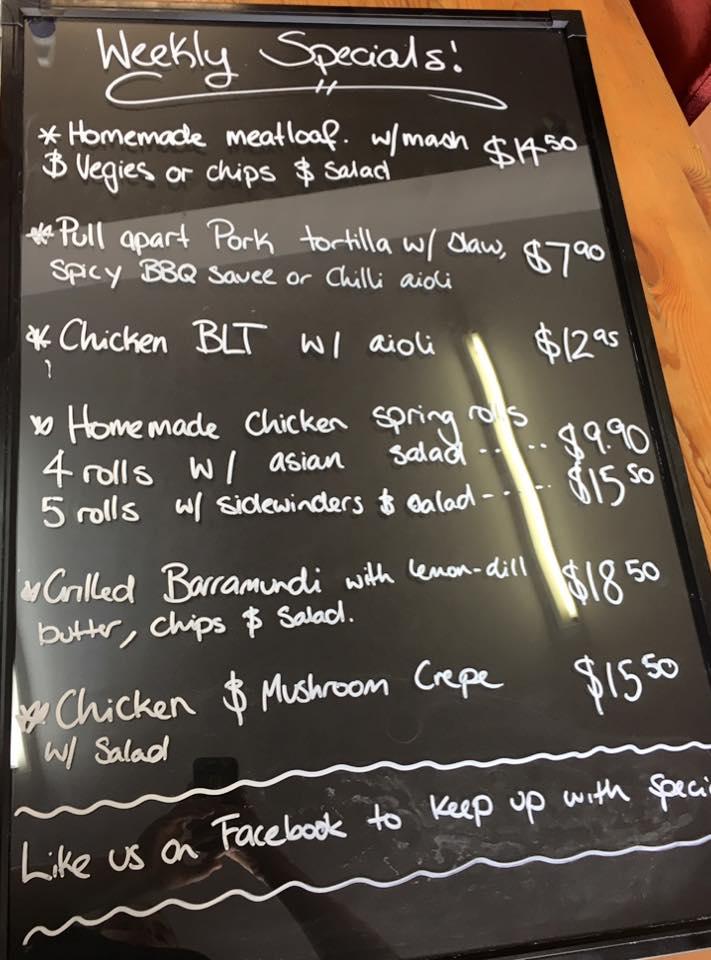 Weekly Specials!
* Homemade meatloaf. w/mash $14.50
$ Vegies or chips $ Salad
* Pull apart Pork tortilla w/ slaw, $7.90
Spicy BBQ sauce or Chilli aioli
* Chicken BLT w/ aioli $12.95
* Homemade Chicken spring rolls
4 rolls w/ asian salad ..... $9.90
5 rolls w/ sidewinders $ salad ..... $15.50
* Grilled Barramundi with lemon-dill $18.50
butter, chips $ Salad.
* Chicken $ Mushroom Crepe $15.50
w/ Salad
Like us on Facebook to keep up with speci